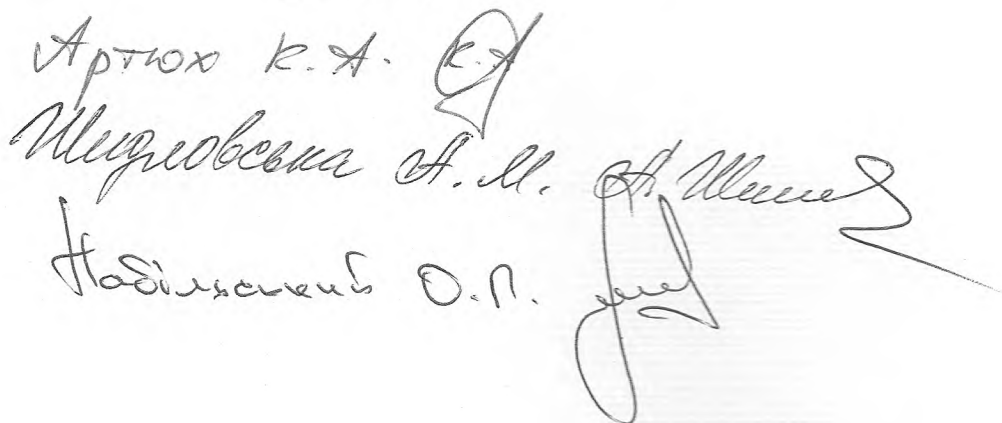 Артюх К.А. К.А
Шидловська А.М. А. Шид
Набільський О.П.